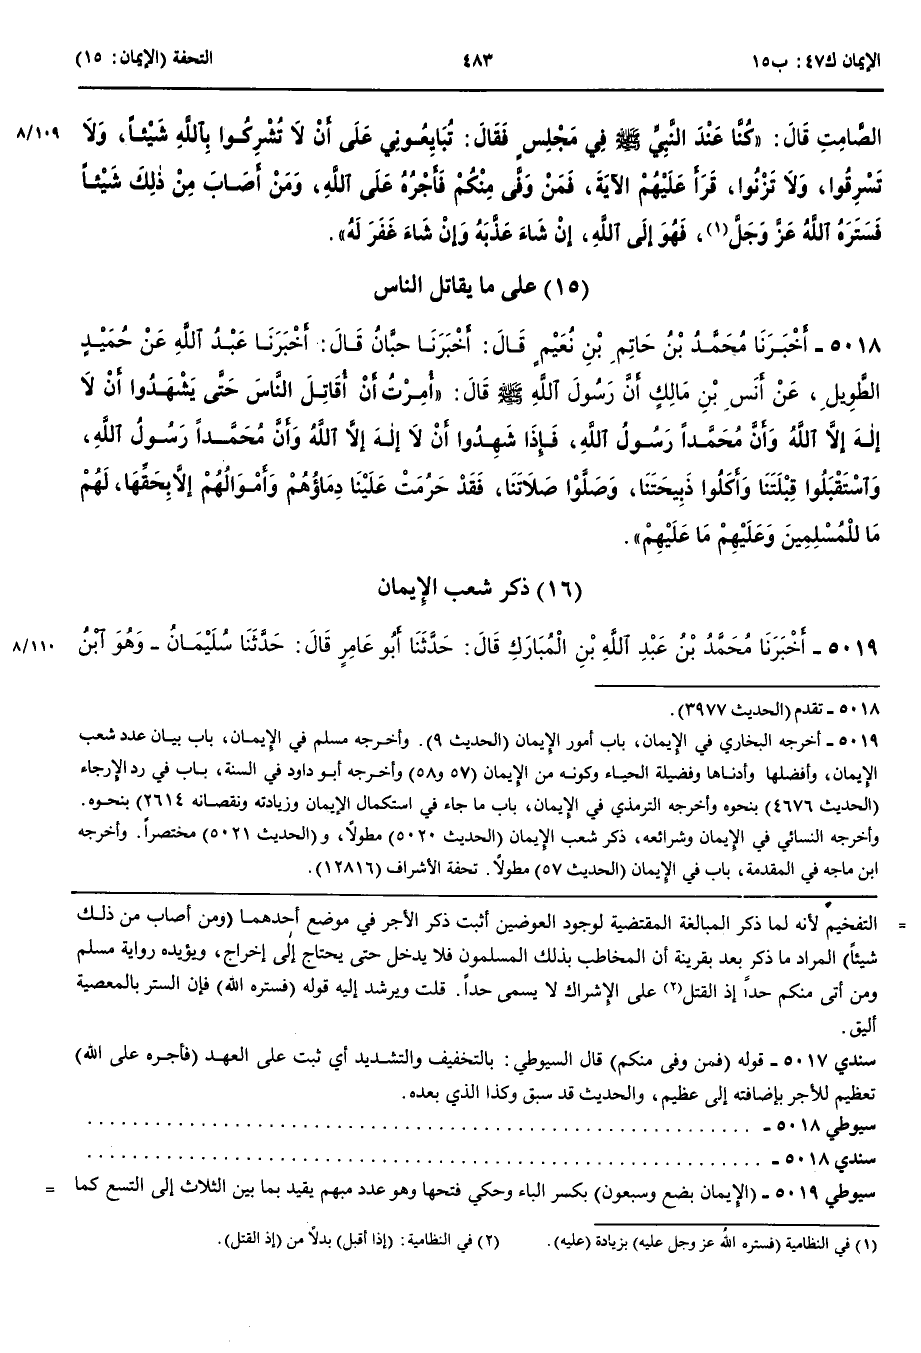 الإيمان ك٤٧: ب١٥ ٤٨٣ التحفة (الإيمان: ١٥)
الصَّامِتِ قَالَ: «كُنَّا عَنْدَ النَّبِيِّ ﷺ فِي مَجْلِسٍ فَقَالَ: تُبَايِعُونِي عَلَى أَنْ لَا تُشْرِكُوا بِاللَّهِ شَيْئاً، وَلَا ٨/١٠٩
تَسْرِقُوا، وَلَا تَزْنُوا، قَرَأَ عَلَيْهُمْ الآيَةَ، فَمَنْ وَفَّى مِنْكُمْ فَأَجْرُهُ عَلَى اللَّهِ، وَمَنْ أَصَابَ مِنْ ذٰلِكَ شَيْئاً
فَسَتَرَهُ اللَّهُ عَزَّ وَجَلَّ(١)، فَهُوَ إِلَى اللَّهِ، إِنْ شَاءَ عَذَّبَهُ وَإِنْ شَاءَ غَفَرَ لَهُ».
(١٥) على ما يقاتل الناس
٥٠١٨ ـ أَخْبَرَنَا مُحَمَّدُ بْنُ حَاتِمِ بْنِ نُعَيْمٍ قَالَ: أَخْبَرَنَا حِبَّانُ قَالَ: أَخْبَرَنَا عَبْدُ اللَّهِ عَنْ حُمَيْدٍ
الطَّوِيلِ، عَنْ أَنَسِ بْنِ مَالِكٍ أَنَّ رَسُولَ اللَّهِ ﷺ قَالَ: «أُمِرْتُ أَنْ أُقَاتِلَ النَّاسَ حَتَّى يَشْهَدُوا أَنْ لَا
إِلٰهَ إِلَّا اللَّهُ وَأَنَّ مُحَمَّداً رَسُولُ اللَّهِ، فَإِذَا شَهِدُوا أَنْ لَا إِلٰهَ إِلَّا اللَّهُ وَأَنَّ مُحَمَّداً رَسُولُ اللَّهِ،
وَاسْتَقْبَلُوا قِبْلَتَنَا وَأَكَلُوا ذَبِيحَتَنَا، وَصَلَّوْا صَلَاتَنَا، فَقَدْ حَرُمَتْ عَلَيْنَا دِمَاؤُهُمْ وَأَمْوَالُهُمْ إِلَّا بِحَقِّهَا، لَهُمْ
مَا لِلْمُسْلِمِينَ وَعَلَيْهِمْ مَا عَلَيْهِمْ».
(١٦) ذكر شعب الإيمان
٥٠١٩ ـ أَخْبَرَنَا مُحَمَّدُ بْنُ عَبْدِ اللَّهِ بْنِ الْمُبَارَكِ قَالَ: حَدَّثَنَا أَبُو عَامِرٍ قَالَ: حَدَّثَنَا سُلَيْمَانُ ـ وَهُوَ ابْنُ ٨/١١٠
٥٠١٨ ـ تقدم (الحديث ٣٩٧٧).
٥٠١٩ ـ أخرجه البخاري في الإيمان، باب أمور الإيمان (الحديث ٩). وأخرجه مسلم في الإيمان، باب بيان عدد شعب
الإيمان، وأفضلها وأدناها وفضيلة الحياء وكونه من الإيمان (٥٧ و٥٨) وأخرجه أبو داود في السنة، باب في رد الإرجاء
(الحديث ٤٦٧٦) بنحوه وأخرجه الترمذي في الإيمان، باب ما جاء في استكمال الإيمان وزيادته ونقصانه ٢٦١٤) بنحوه.
وأخرجه النسائي في الإيمان وشرائعه، ذكر شعب الإيمان (الحديث ٥٠٢٠) مطولًا، و(الحديث ٥٠٢١) مختصراً. وأخرجه
ابن ماجه في المقدمة، باب في الإيمان (الحديث ٥٧) مطولًا. تحفة الأشراف (١٢٨١٦).
= التفخيم لأنه لما ذكر المبالغة المقتضية لوجود العوضين أثبت ذكر الأجر في موضع أحدهما (ومن أصاب من ذلك
شيئاً) المراد ما ذكر بعد بقرينة أن المخاطب بذلك المسلمون فلا يدخل حتى يحتاج إلى إخراج، ويؤيده رواية مسلم
ومن أتى منكم حداً إذ القتل(٢) على الإشراك لا يسمى حداً. قلت ويرشد إليه قوله (فستره الله) فإن الستر بالمعصية
أليق.
سندي ٥٠١٧ ـ قوله (فمن وفى منكم) قال السيوطي: بالتخفيف والتشديد أي ثبت على العهد (فأجره على الله)
تعظيم للأجر بإضافته إلى عظيم، والحديث قد سبق وكذا الذي بعده.
سيوطي ٥٠١٨ ـ ........................................................
سندي ٥٠١٨ ـ ........................................................
سيوطي ٥٠١٩ ـ (الإيمان بضع وسبعون) بكسر الباء وحكي فتحها وهو عدد مبهم يقيد بما بين الثلاث إلى التسع كما =
(١) في النظامية (فستره الله عز وجل عليه) بزيادة (عليه). (٢) في النظامية: (إذا أقبل) بدلًا من (إذ القتل).